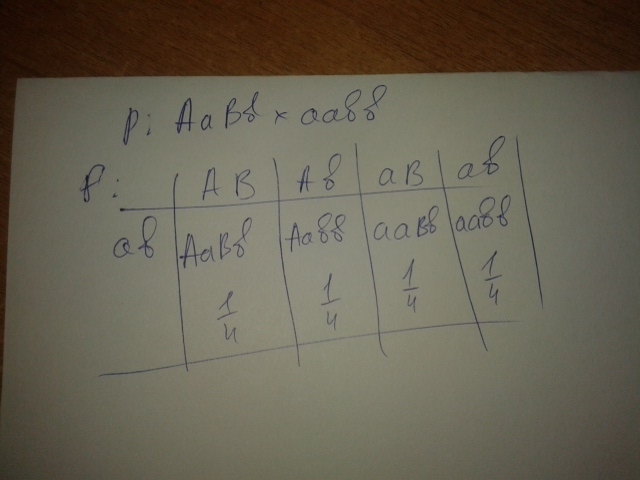 P: AaBв × aaвв
F: AB Aв aB aв
aв AaBв Aaвв aaBв aaвв
1/4 1/4 1/4 1/4